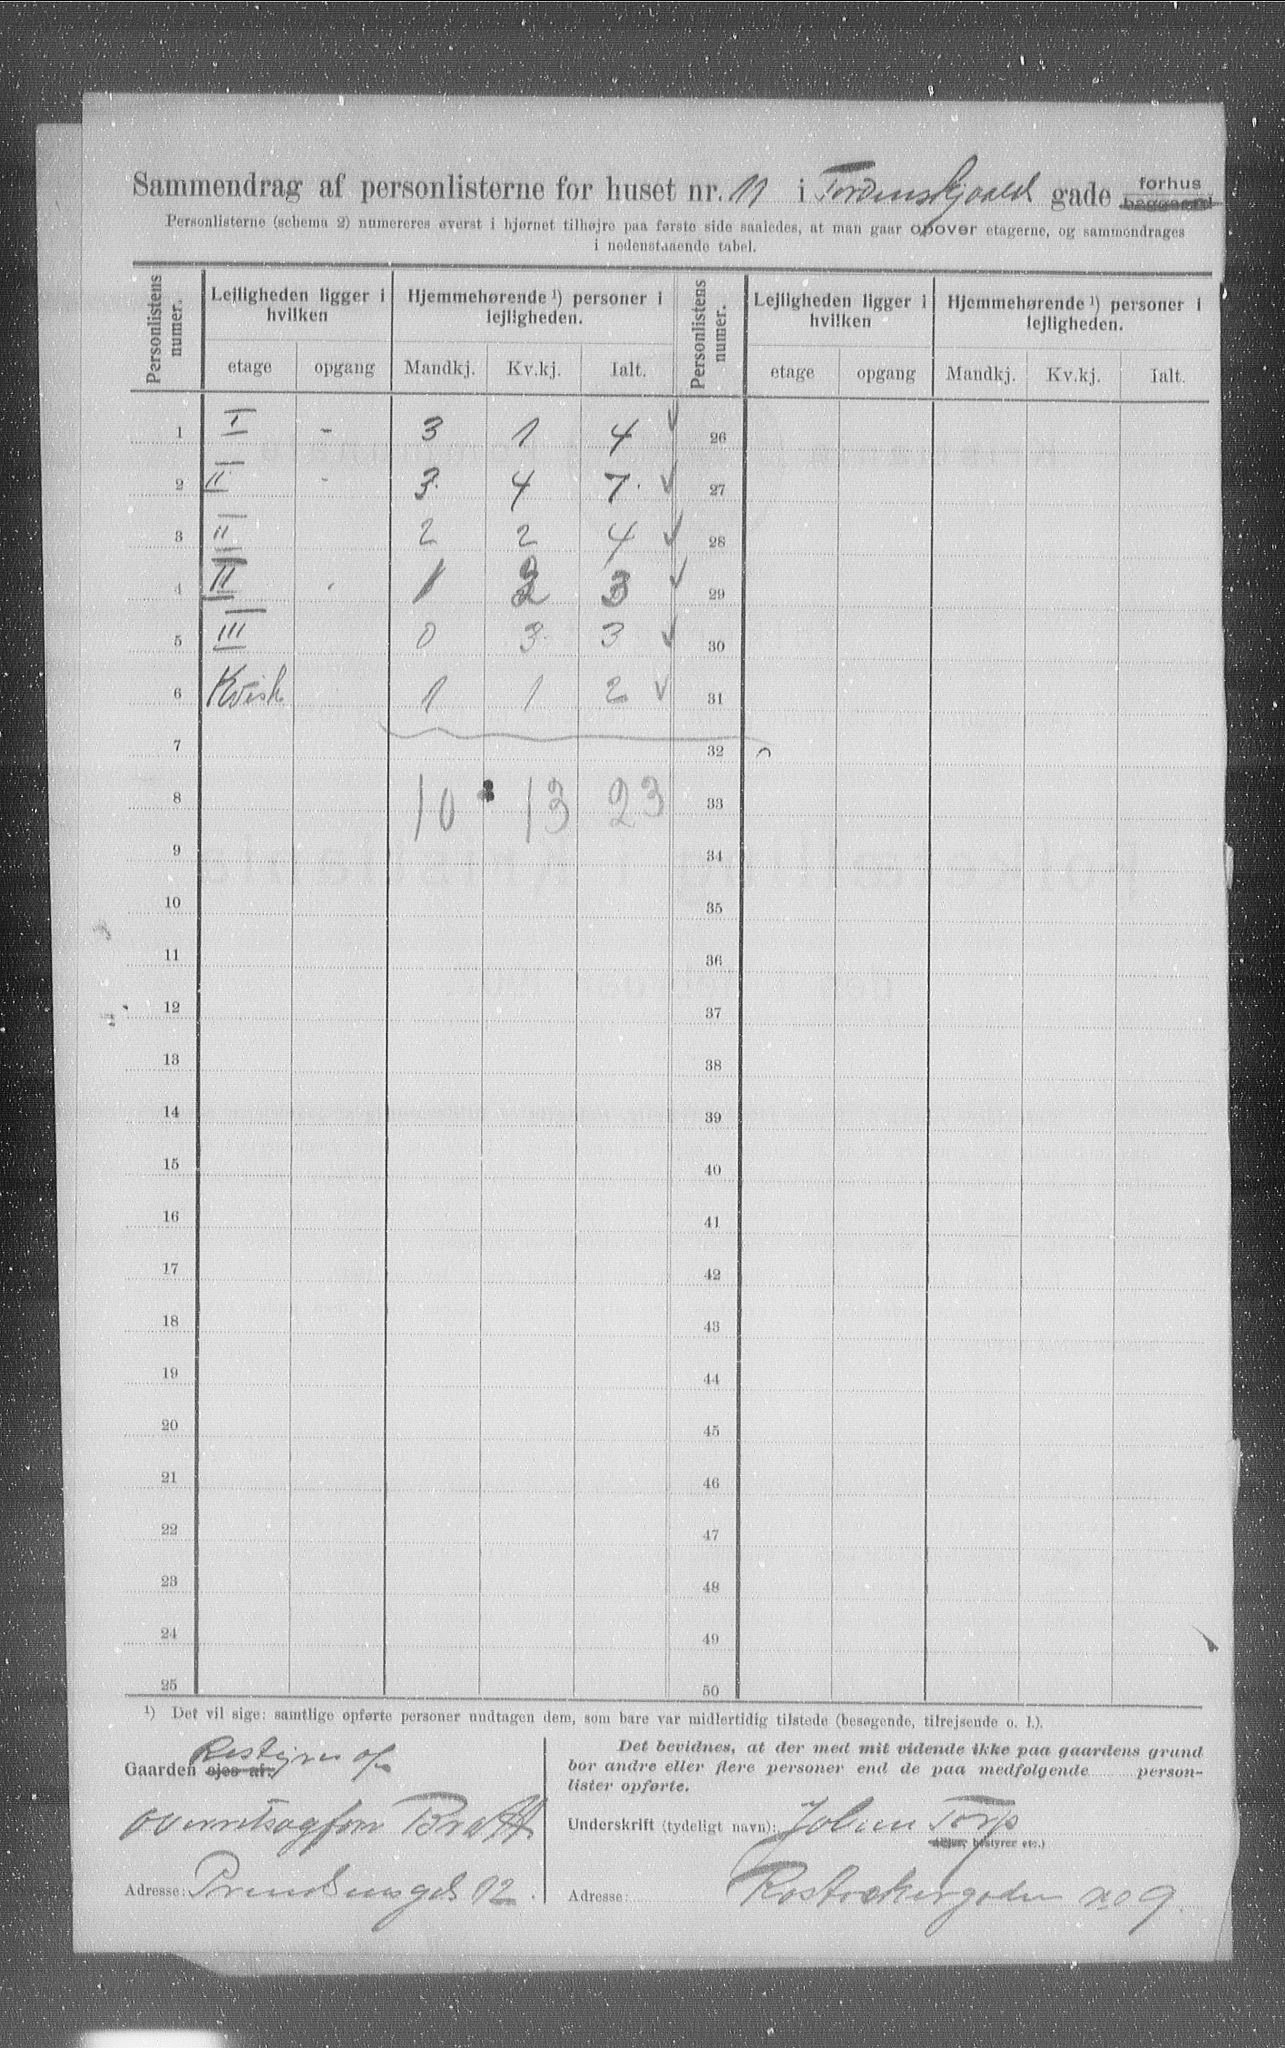 Sammendrag af personlisterne for huset nr. 11 i Tordenskjolds gade forhus baggaard
Personlisterne (schema 2) numereres øverst i hjørnet tilhøjre paa første side saaledes, at man gaar opover etagerne, og sammendrages
i nedenstaaende tabel.
Personlistens numer. Lejligheden ligger i hvilken Hjemmehørende ¹) personer i lejligheden. Personlistens numer. Lejligheden ligger i hvilken Hjemmehørende ¹) personer i lejligheden.
etage opgang Mandkj. Kv.kj. Ialt. etage opgang Mandkj. Kv.kj. Ialt.
1 I - 3 1 4 ✓ 26
2 II - 3 4 7 ✓ 27
3 II 2 2 4 ✓ 28
4 II 1 2 3 ✓ 29
5 III 0 3 3 ✓ 30
6 Kvist 1 1 2 ✓ 31
7 32
8 10 13 23 33
9 34
10 35
11 36
12 37
13 38
14 39
15 40
16 41
17 42
18 43
19 44
20 45
21 46
22 47
23 48
24 49
25 50
¹) Det vil sige: samtlige opførte personer undtagen dem, som bare var midlertidig tilstede (besøgende, tilrejsende o. l.).
Gaarden ejes af: Bestyres af
Adresse: 12
Det bevidnes, at der med mit vidende ikke paa gaardens grund
bor andre eller flere personer end de paa medfølgende person-
lister opførte.
Underskrift (tydeligt navn): Torp
(eier, bestyrer etc.)
Adresse: no 9.